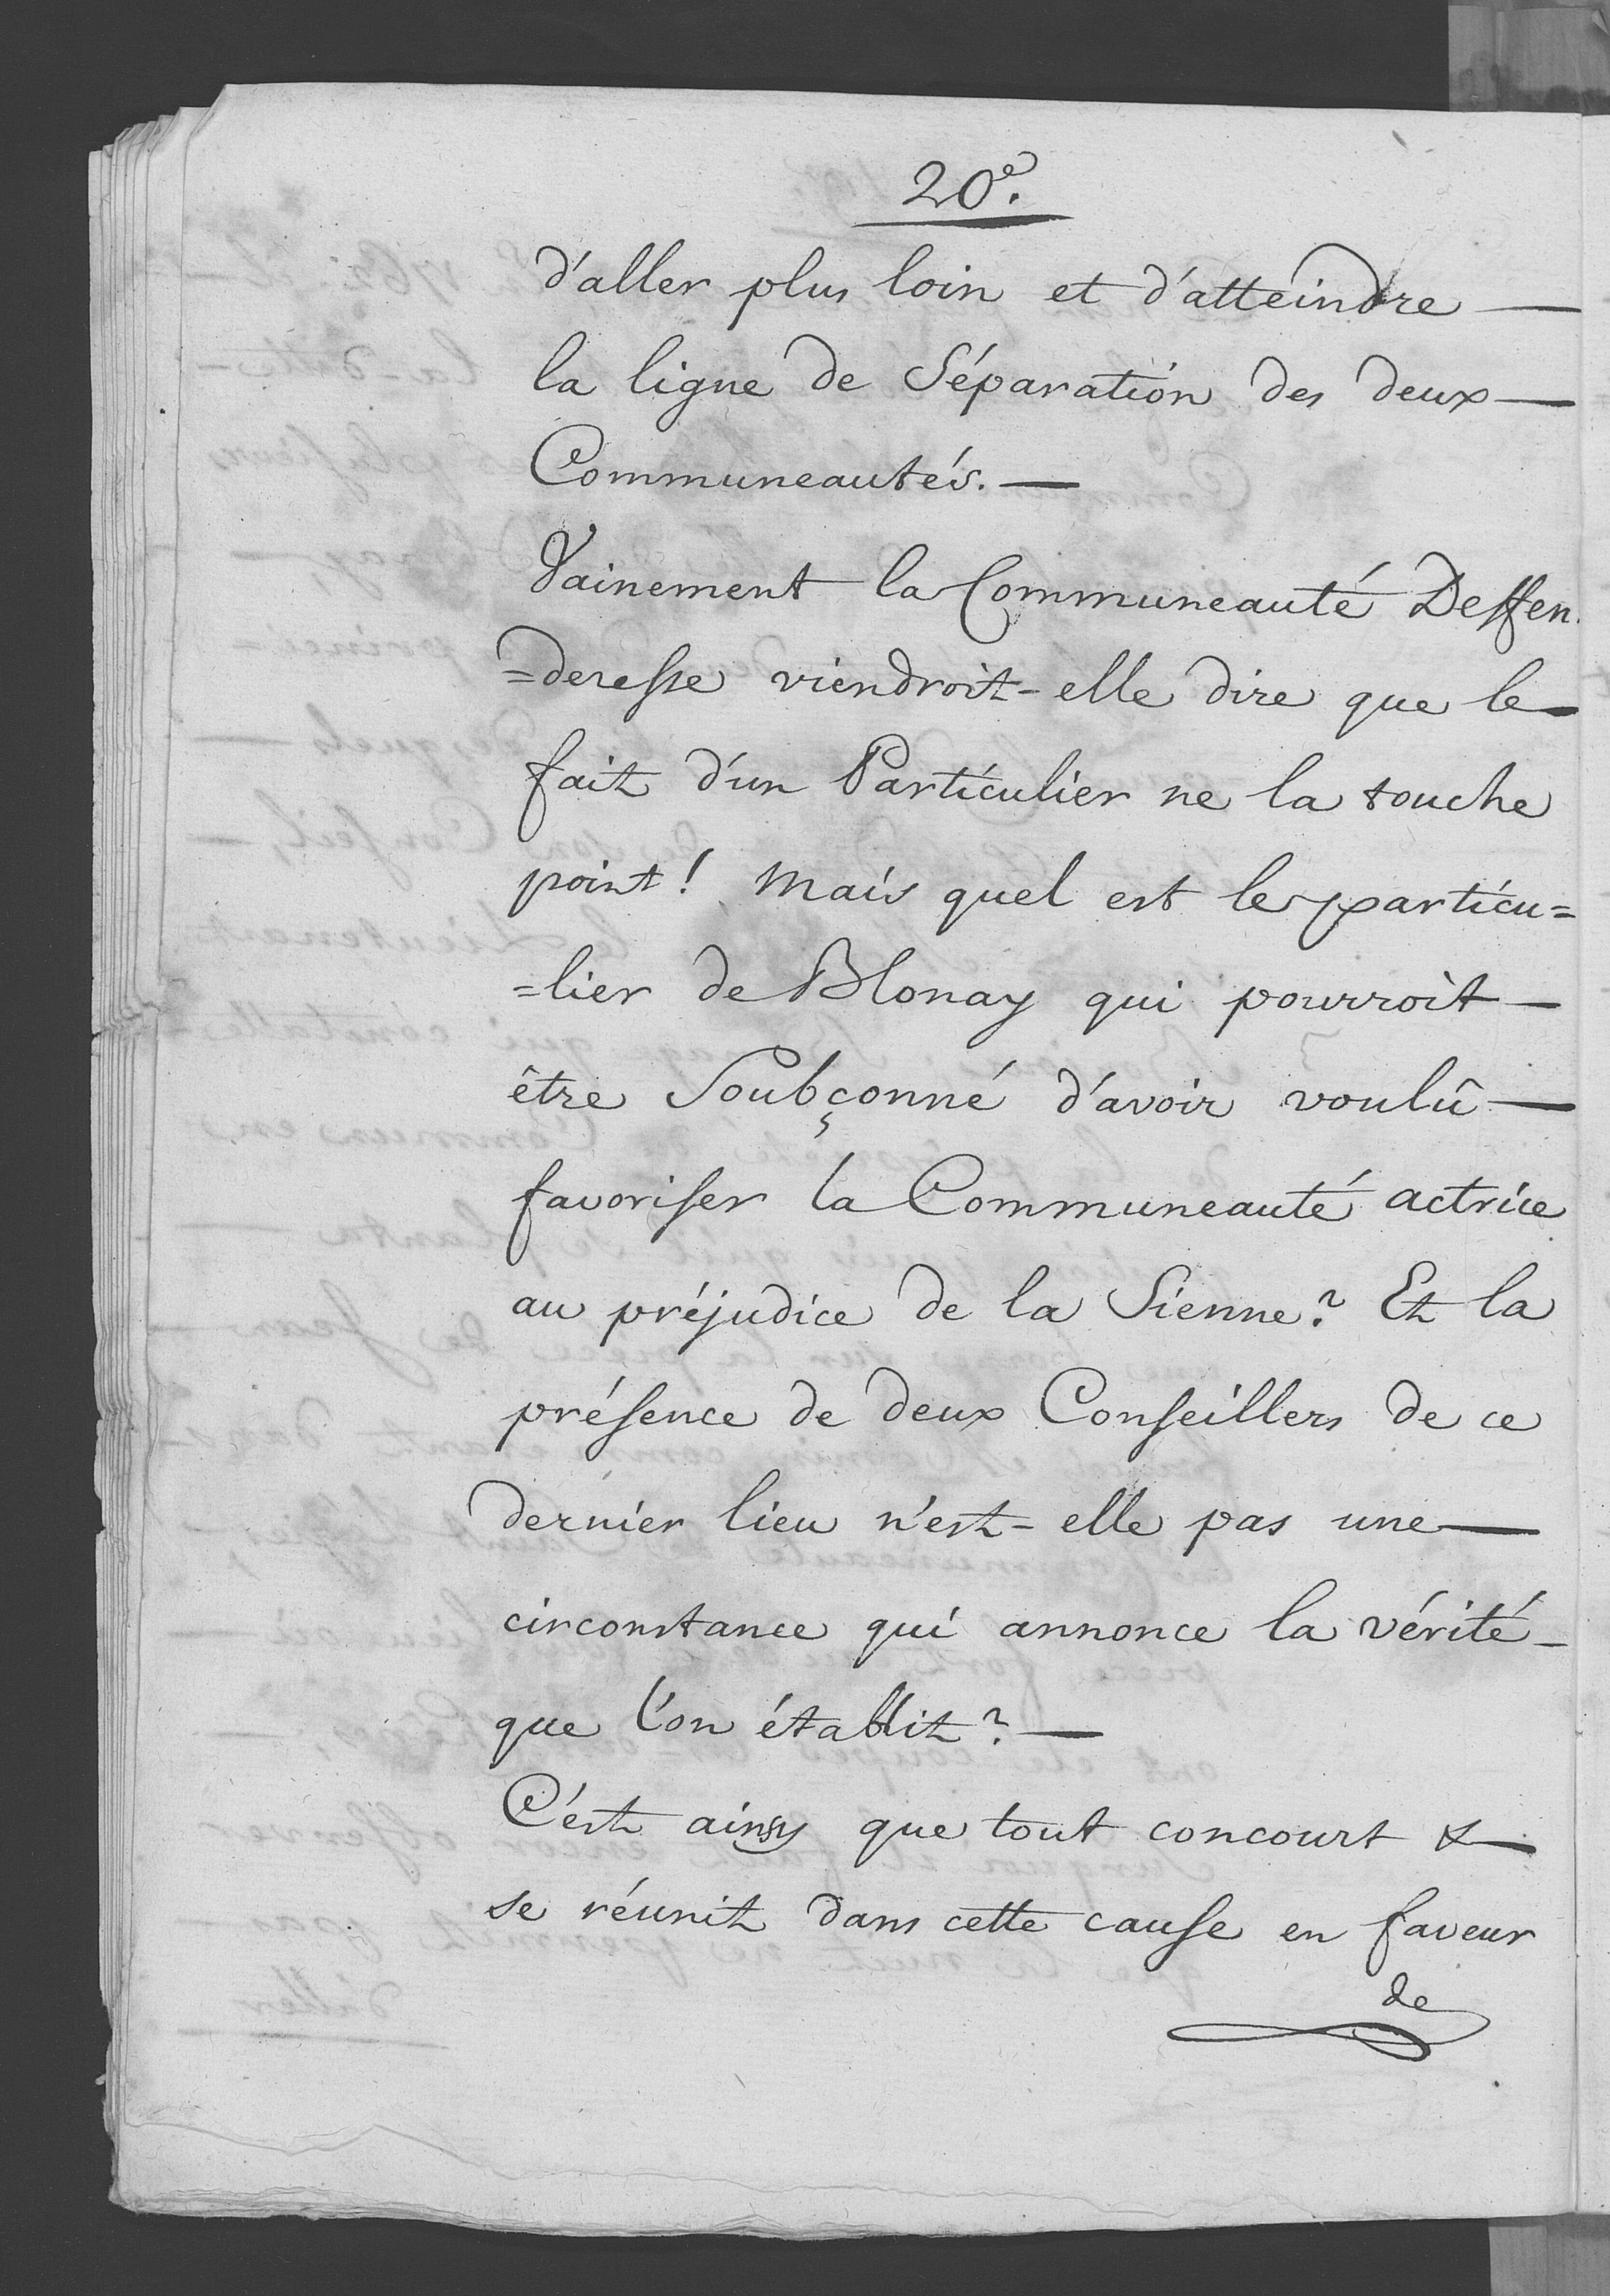 20e.
d'aller plus loin et d'atteindre —
la ligne de Séparation des deux —
Communeautés. —
Vainement la Communeauté Deffen.
=deresse viendroit-elle dire que le —
fait d'un Particulier ne la touche
point ! Mais quel est le particu=
=lier de Blonay qui pourroit —
être Soubçonné d'avoir voulû —
favoriser la Communeauté actrice
au préjudice de la Sienne ? Et la
présence de deux Conseillers de ce
dernier lieu n'est-elle pas une —
circonstance qui annonce la vérité —
que l'on établit ? —
C'est ainsy que tout concourt & —
se réunit dans cette cause en faveur
de